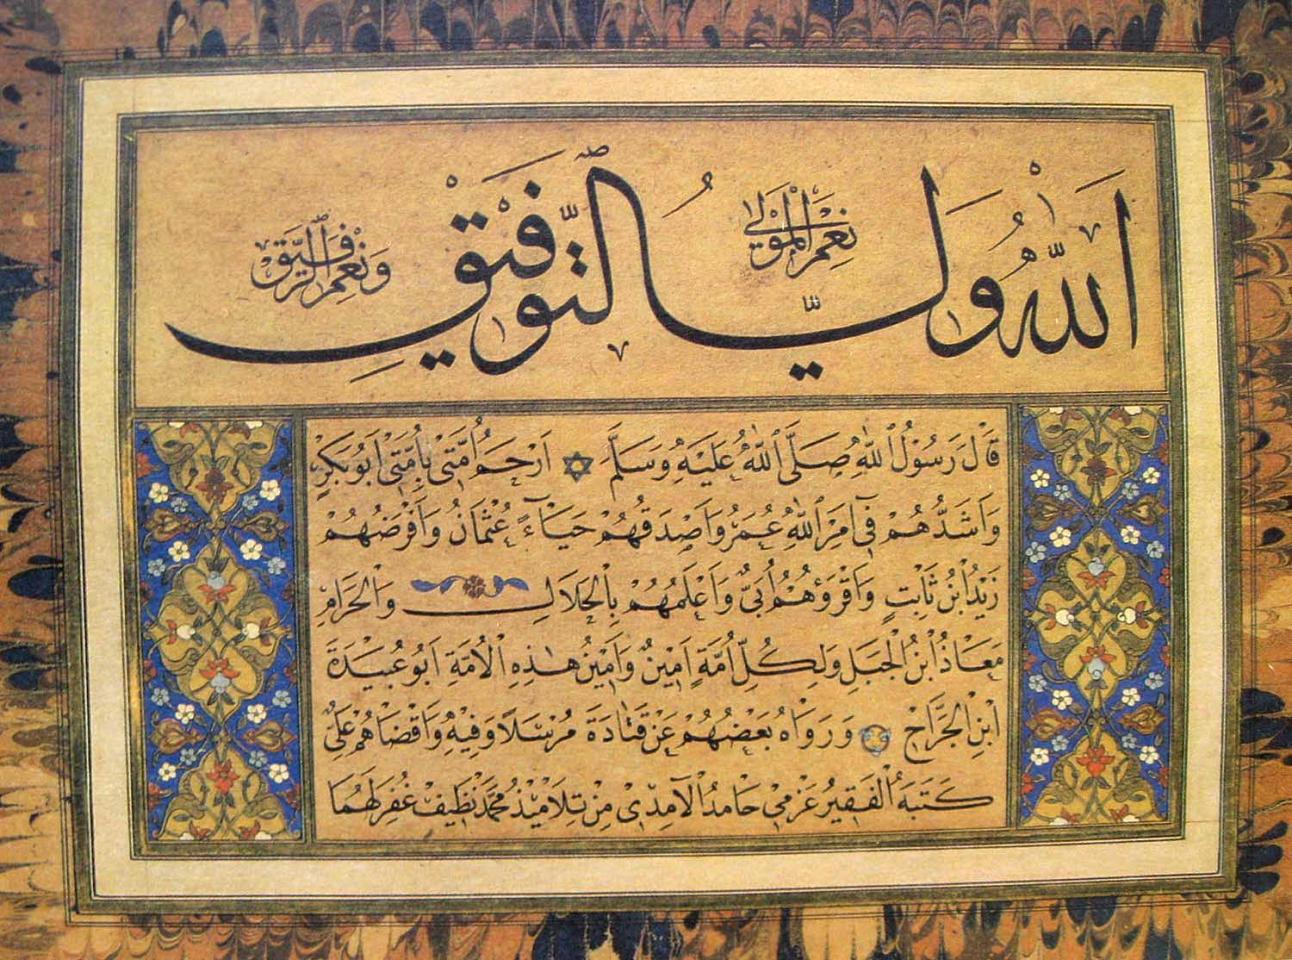 اَللّٰهُ وَلِيُّ التَّوْفِيقِ
نِعْمَ الْمَوْلٰى
وَنِعْمَ الرَّفِيقُ
قَالَ رَسُولُ اللّٰهِ صَلَّى اللّٰهُ عَلَيْهِ وَسَلَّمَ اَرْحَمُ اُمَّتٖى بِاُمَّتٖى اَبُو بَكْرٍ
وَاَشَدُّهُمْ فٖى اَمْرِ اللّٰهِ عُمَرُ وَاَصْدَقُهُمْ حَيَاءً عُثْمَانُ وَاَفْرَضُهُمْ
زَيْدُ ابْنُ ثَابِتٍ وَاَقْرَؤُهُمْ اُبَىٌّ وَاَعْلَمُهُمْ بِالْحَلَالِ وَالْحَرَامِ
مَعَاذُ ابْنُ الْجَبَلِ وَلِكُلِّ اُمَّةٍ اَمٖينٌ وَاَمٖينُ هٰذِهِ الْاُمَّةِ اَبُو عُبَيْدَةَ
ابْنِ الْجَرَّاحِ وَرَوَاهُ بَعْضُهُمْ عَنْ قَتَادَةَ مُرْسَلًا وَفٖيهِ وَاَقْضَاهُمْ عَلِىٌّ
كَتَبَهُ الْفَقٖيرُ عَزْمٖى حَامِدُ الْاٰمِدِّى مِنْ تَلَامٖيذِ مُحَمَّدْ نَظٖيفْ غُفِرَ لَهُمَا